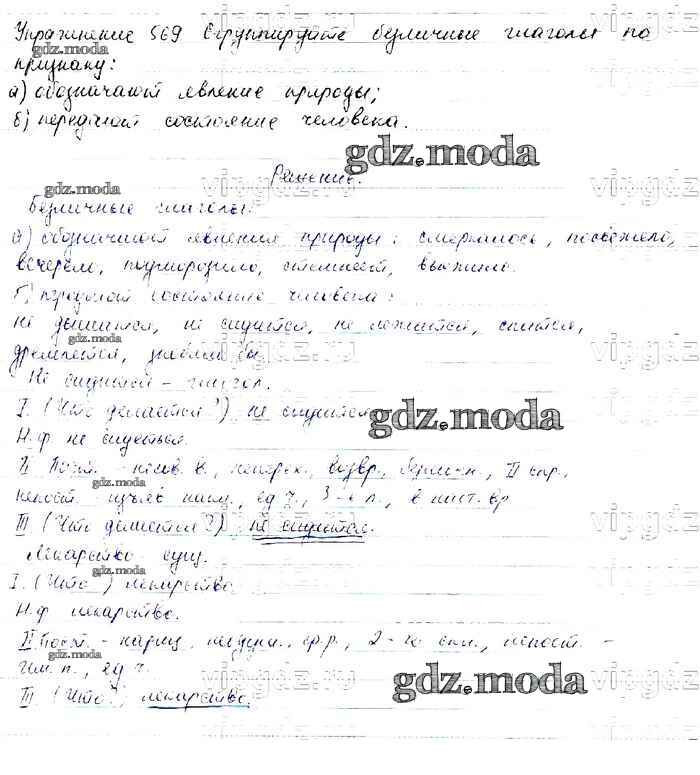 Упражнение 569 Сгруппируйте безличные глаголы по
gdz.moda
признаку:
а) обозначают явление природы;
б) передают состояние человека.
gdz.moda
Решение.
gdz.moda
Безличные глаголы:
а) обозначают явления природы: смеркалось, посвежело,
вечереет, подморозило, стемнеет,
б) передают состояние человека:
не дышится, не сидится, не лежится, спится,
gdz.moda
дремлется,
Не сидится – глагол.
I. (Что делается?) не сидится
gdz.moda
Н.ф. не сидеться.
II Пост. – несов. в., неперех., возвр., II спр.,
gdz.moda
непост. изъяв. накл., ед.ч., 3-е л., в наст. вр.
III (Что делается?) не сидится.
Лекарство сущ.
gdz.moda
I. (Что?) лекарство.
Н.ф. лекарство.
II Пост. – нариц., неодуш., ср.р., 2-е скл., непост. –
gdz.moda
им.п., ед.ч.
gdz.moda
III (Что?) лекарство.
vipgdz.ru